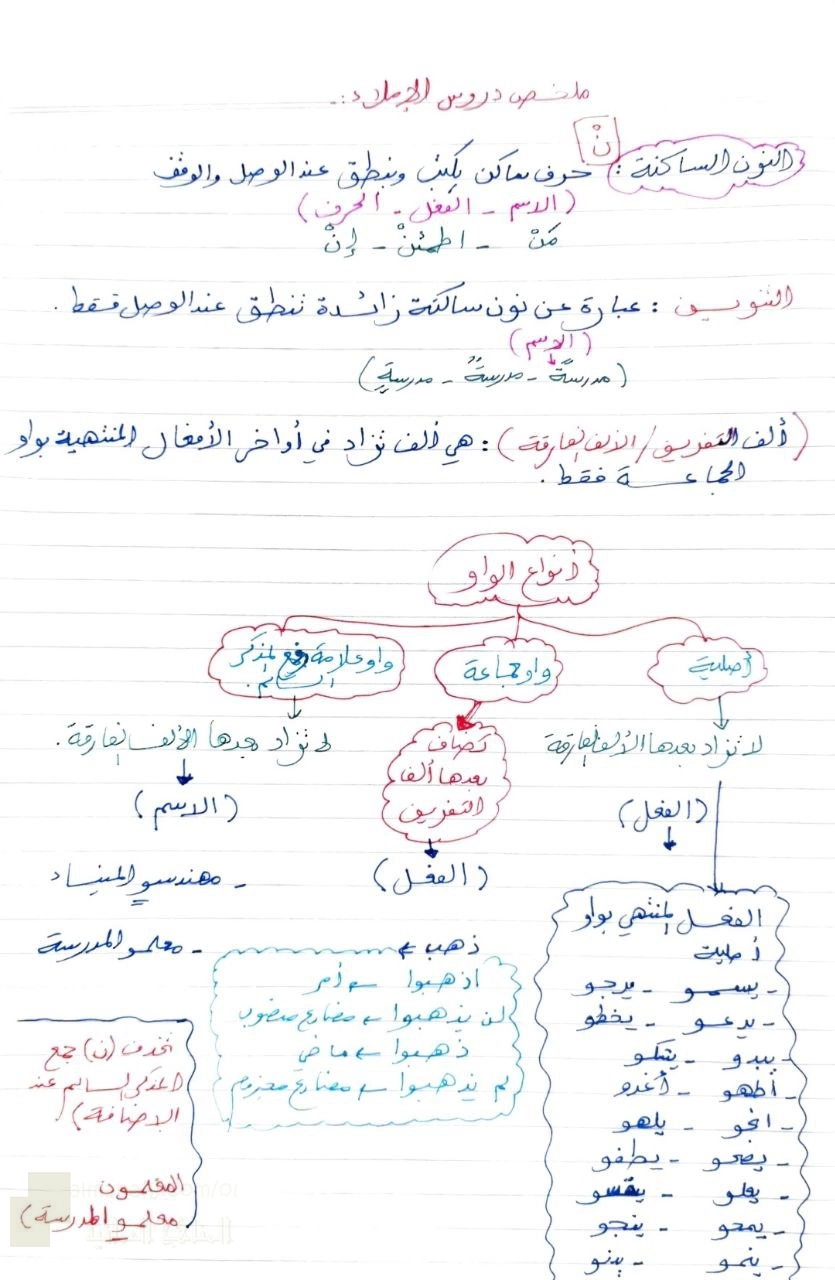 ملخص دروس الإملاء :.
النون الساكنة : نْ حرف ساكن يكتب وينطق عند الوصل والوقف
(الاسم - الفعل - الحرف)
مَنْ - اطمئنْ - إنْ
التنوين : عبارة عن نون ساكنة زائدة تنطق عند الوصل فقط .
(الاسم)
(مدرسةً - مدرسةٌ - مدرسةٍ)
(ألف التفريق / الألف الفارقة) : هي ألف تزاد في أواخر الأفعال المنتهية بواو
الجماعة فقط .
أنواع الواو
أصلية
لا تزاد بعدها الألف الفارقة
(الفعل)
الفعل المنتهي بواو
أصلية
- يسمو - يرجو
- يدعو - يخطو
- يبدو - يشكو
- أطهو - أغدو
- انجو - يلهو
- يصحو - يطفو
- يعلو - يقسو
- يمحو - ينجو
- ينمو - يدنو
واو جماعة
تضاف
بعدها ألف
التفريق
(الفعل)
ذهب ←
اذهبوا ← أمر
لن يذهبوا ← مضارع منصوب
ذهبوا ← ماضي
لم يذهبوا ← مضارع مجزوم
واو علامة رفع المذكر
السالم .
لا تزاد بعدها الألف الفارقة .
(الاسم)
- مهندسو الميناء
- معلمو المدرسة
تحذف (ن) جمع
المذكر السالم عند
الإضافة)
المعلمون
معلمو المدرسة)